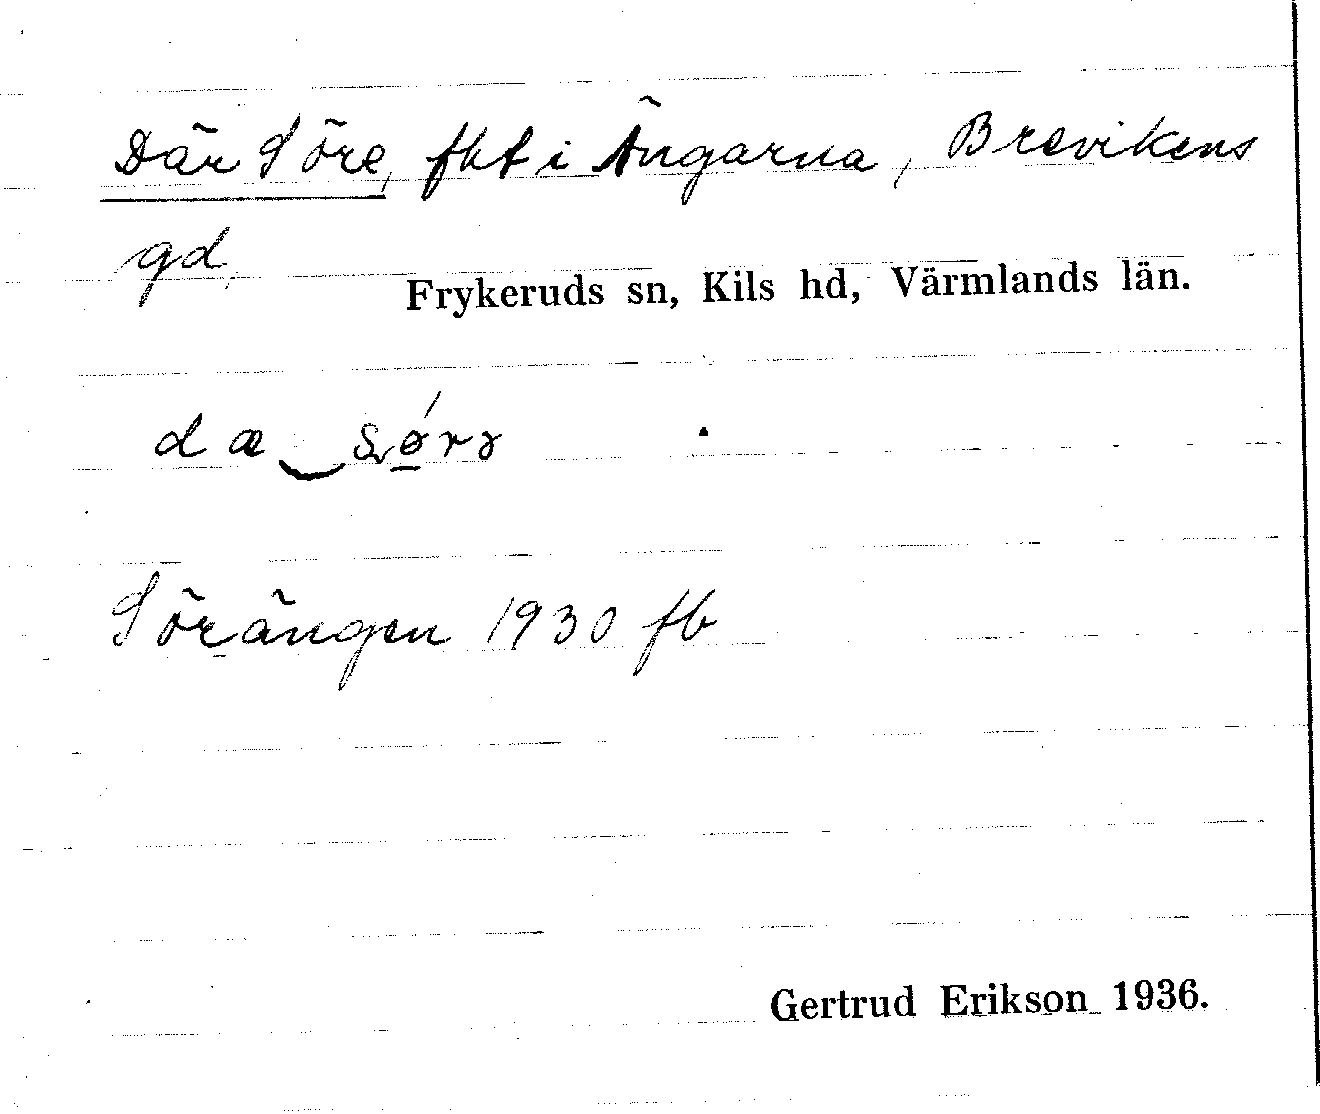 Där Söre, fht i Ängarna, Brevikens
gd,
Frykeruds sn, Kils hd, Värmlands län.
dæ‿sǿ̱rə
Sörängen 1930 fb
Gertrud Erikson 1936.